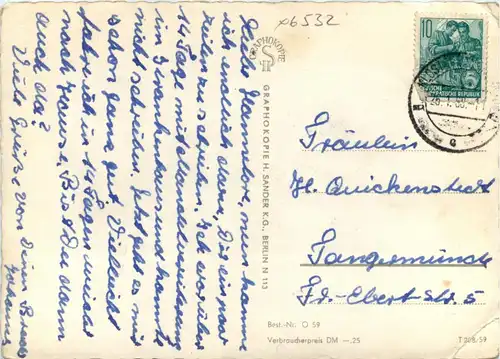 Liebe Hannelore, nun komme
ich endlich dazu, Dir ein paar
Zeilen zu schreiben. Ich war über
14 Tage mit Mandelentzündung
im Krankenhaus und konnte
nicht schreiben. Jetzt geht es mir
schon ganz gut. Vielleicht
fahr ich in 14 Tagen wieder
nach Hause. Bist Du dann
auch da?
Viele Grüße von Deiner
x6532
GRAPHOKOPIE
GRAPHOKOPIE H. SANDER K.G., BERLIN N 113
10
5
DEUTSCHE DEMOKRATISCHE REPUBLIK
Fräulein
H. Quickenstedt
Tangermünde
Fr.-Ebert-Str. 5
Best.-Nr. O 59
Verbraucherpreis DM —,25